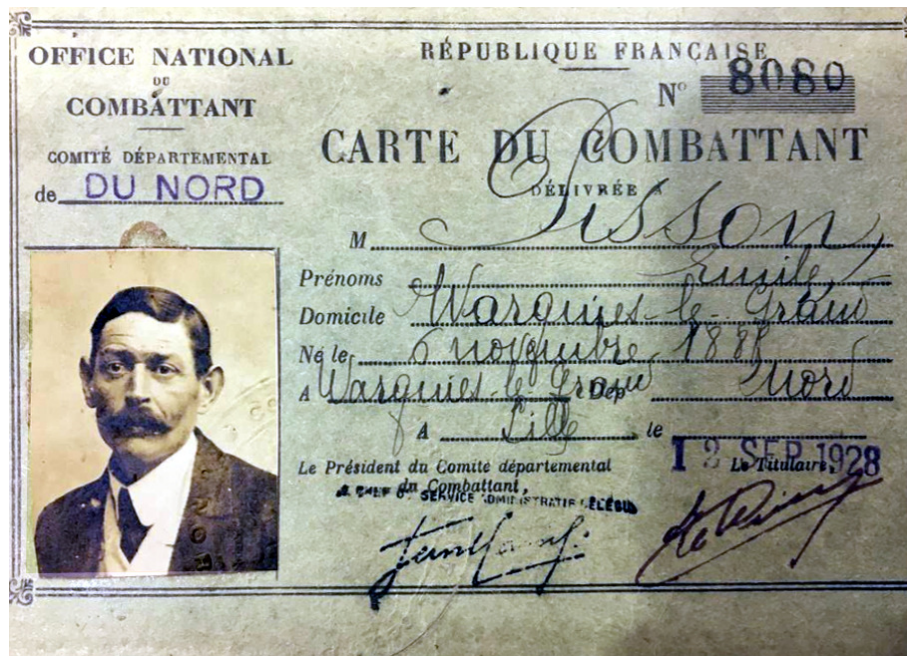 OFFICE NATIONAL
DU
COMBATTANT
COMITÉ DÉPARTEMENTAL
de DU NORD
RÉPUBLIQUE FRANÇAISE
N° 8080
CARTE DU COMBATTANT
DÉLIVRÉE A
M Pisson
Prénoms Emile
Domicile Wargnies-le-Grand
Né le 6 novembre
A Wargnies-le-Grand Dép Nord
A Lille le 12 SEP. 1928
Le Président du Comité départemental
du Combattant,
SERVICE ADMINISTRATIF DÉLÉGUÉ
Le Titulaire,
NOR